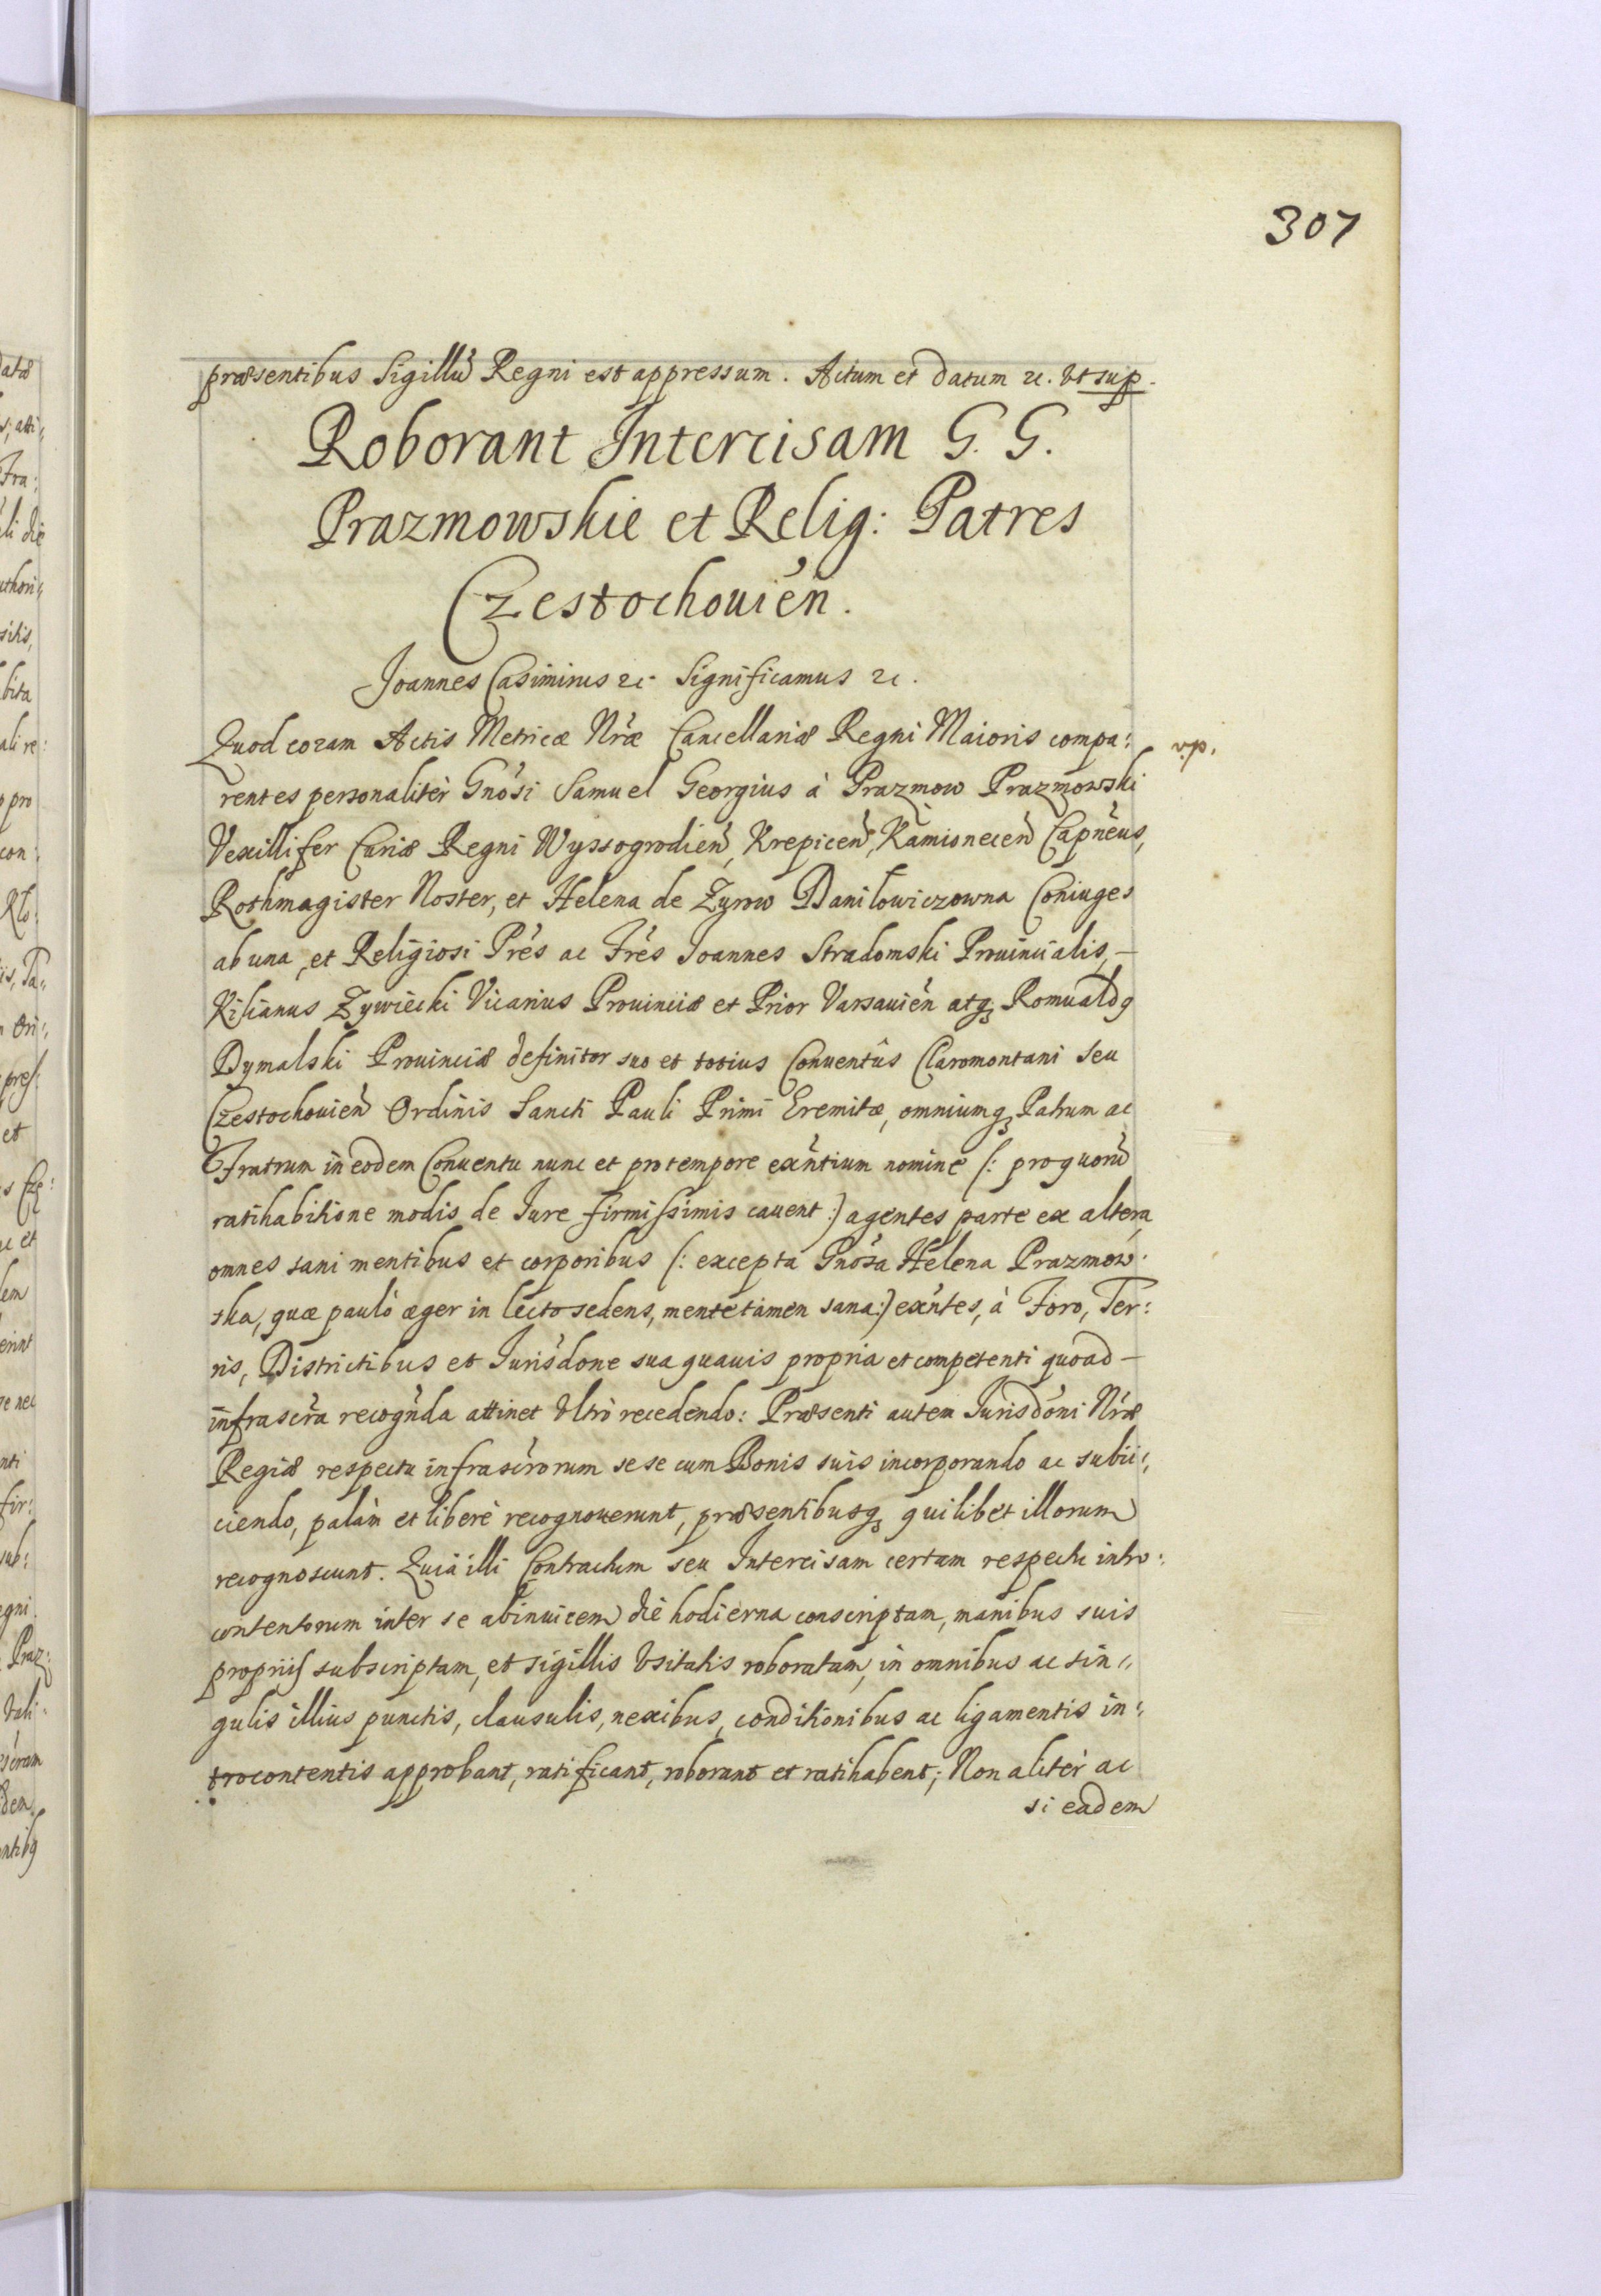 307
præsentibus Sigillũ Regni est appressum. Actum et datum etc. Vt sup.
Roborant Intercisam G. G.
Prazmowskie et Relig: Patres
Czestochouien̄.
Joannes Casimirus etc. Significamus etc.
Quod coram Actis Metricæ Nr̃æ Cancellariæ Regni Maioris compa:
v.p.
rentes personalitèr Gnõsi Samuel Georgius à Prazmow Prazmowski
Vexillifer Curiæ Regni Wyssogrodien̄, Krepicen̄, Kamionecen̄ Capñeus,
Rothmagister Noster, et Helena de Zyrow Daniłowiczowna Coniuges
ab una, et Religiosi Pr̃es ac Fr̃es Joannes Stradomski Prouincialis, –
Kilianus Zywiecki Vicarius Prouinciæ et Prior Varsauien̄ atq; Romualdꝯ
Dymalski Prouinciæ definitor suo et totius Conuentûs Claromontani seu
Czestochouien̄ Ordinis Sancti Pauli Primi Eremitæ, omniumq; Patrum ac
Fratrum in eodem Conuentu nunc et pro tempore exñtium nomine (: pro quorũ
ratihabitione modis de Jure firmissimis cauent :) agentes parte ex altera,
omnes sani mentibus et corporibus (: excepta Gnõsa Helena Prazmow:
ska, quæ paulò æger in lecto sedens, mente tamen sana :) exñtes, à Foro, Ter:
ris, Districtibus et Jurisdõne sua quauis propria et competenti quoad –
infrascr̃a recogñda attinet Vltrò recedendo: Præsenti autem Jurisdõni Nr̃æ
Regiæ respectu infrascr̃orum sese cum Bonis suis incorporando ac subii:
ciendo, palàm et liberè recognouerunt, præsentibusq; quilibet illorum
recognoscunt. Quià illi Contractum seu Intercisam certam respectu intro:
contentorum inter se abinuicem die hodierna conscriptam, manibus suis
propriis subscriptam, et sigillis Vsitatis roboratam, in omnibus ac sin:
gulis illius punctis, clausulis, nexibus, conditionibus ac ligamentis in:
trocontentis approbant, ratificant, roborant et ratihabent; Non alitèr ac
si eadem